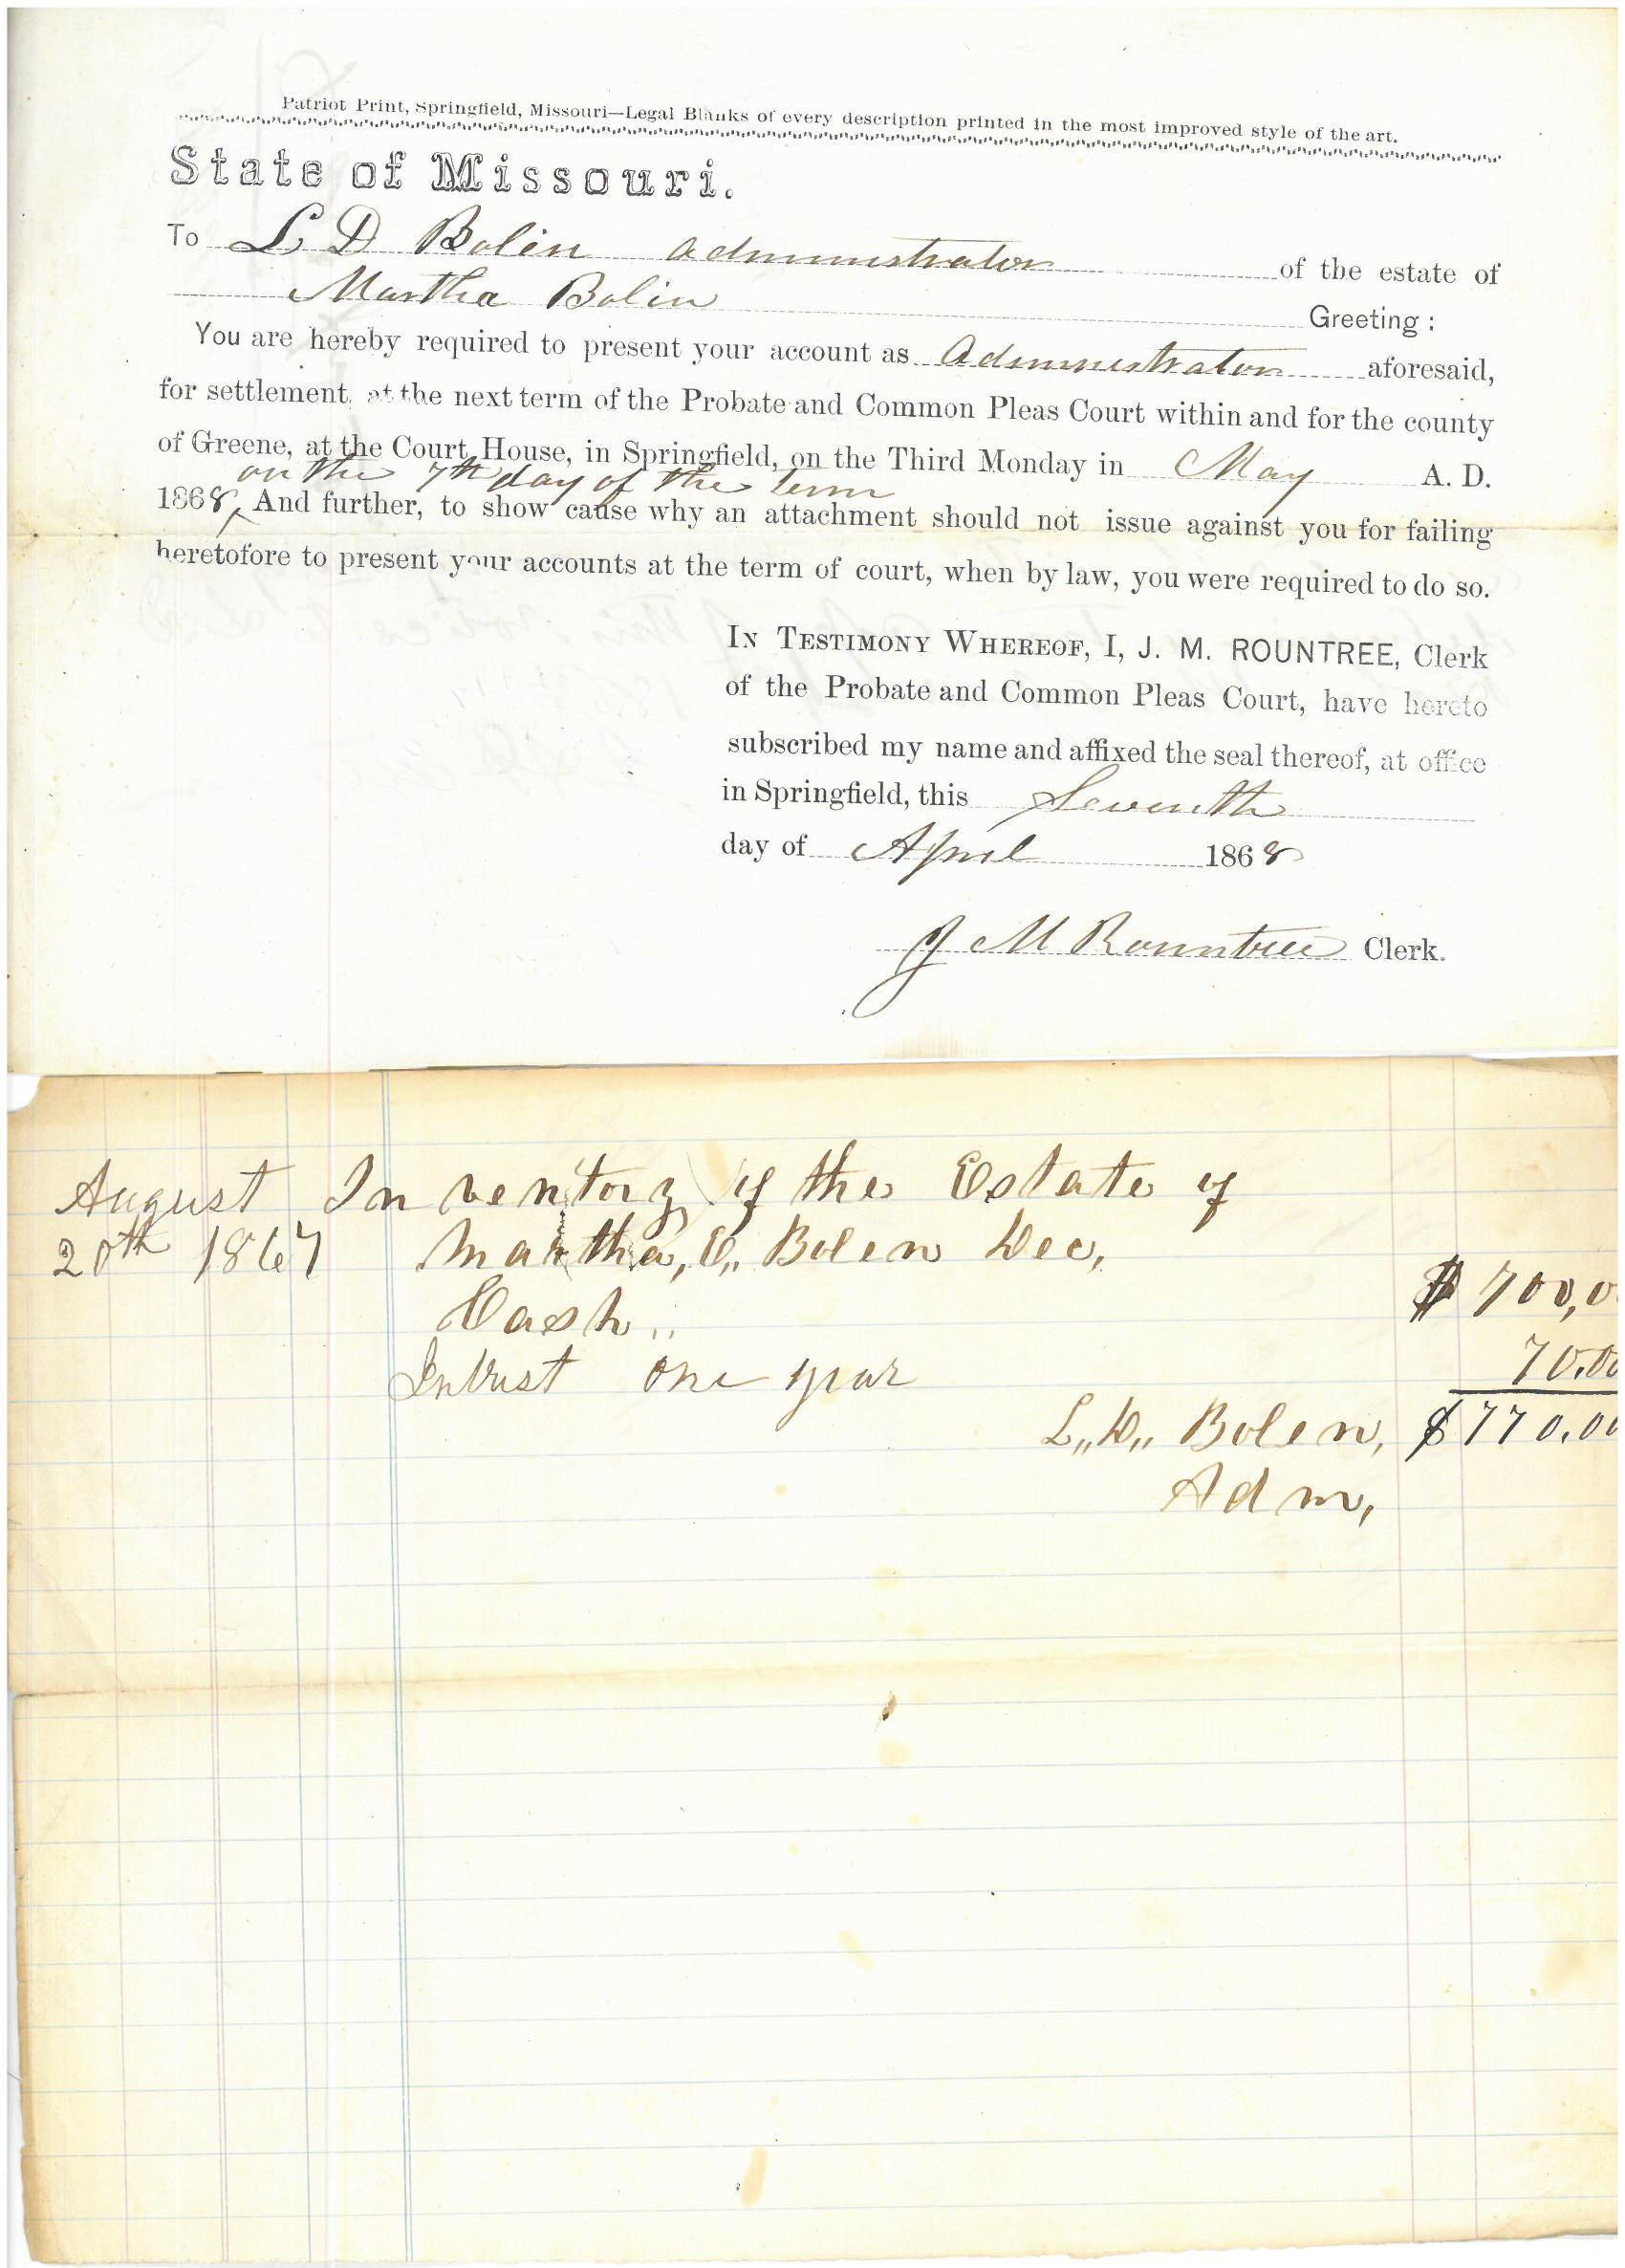 Patriot Print, Springfield, Missouri—Legal Blanks of every description printed in the most improved style of the art.
State of Missouri.
To L D Bolin administrator of the estate of
Martha Bolin Greeting:
You are hereby required to present your account as Administrator aforesaid,
for settlement, at the next term of the Probate and Common Pleas Court within and for the county
of Greene, at the Court House, in Springfield, on the Third Monday in May A. D.
on the 7th day of the term
1868 And further, to show cause why an attachment should not issue against you for failing
heretofore to present your accounts at the term of court, when by law, you were required to do so.
In Testimony Whereof, I, J. M. ROUNTREE, Clerk
of the Probate and Common Pleas Court, have hereto
subscribed my name and affixed the seal thereof, at office
in Springfield, this Seventh
day of April 1868
J M Rountree Clerk.
August Inventory of the Estate of
20th 1867 Martha, C,, Bolen Dec,
Cash,, $ 700,0
Intrust one year 70.00
L,, D,, Bolen, $770.00
Adm,